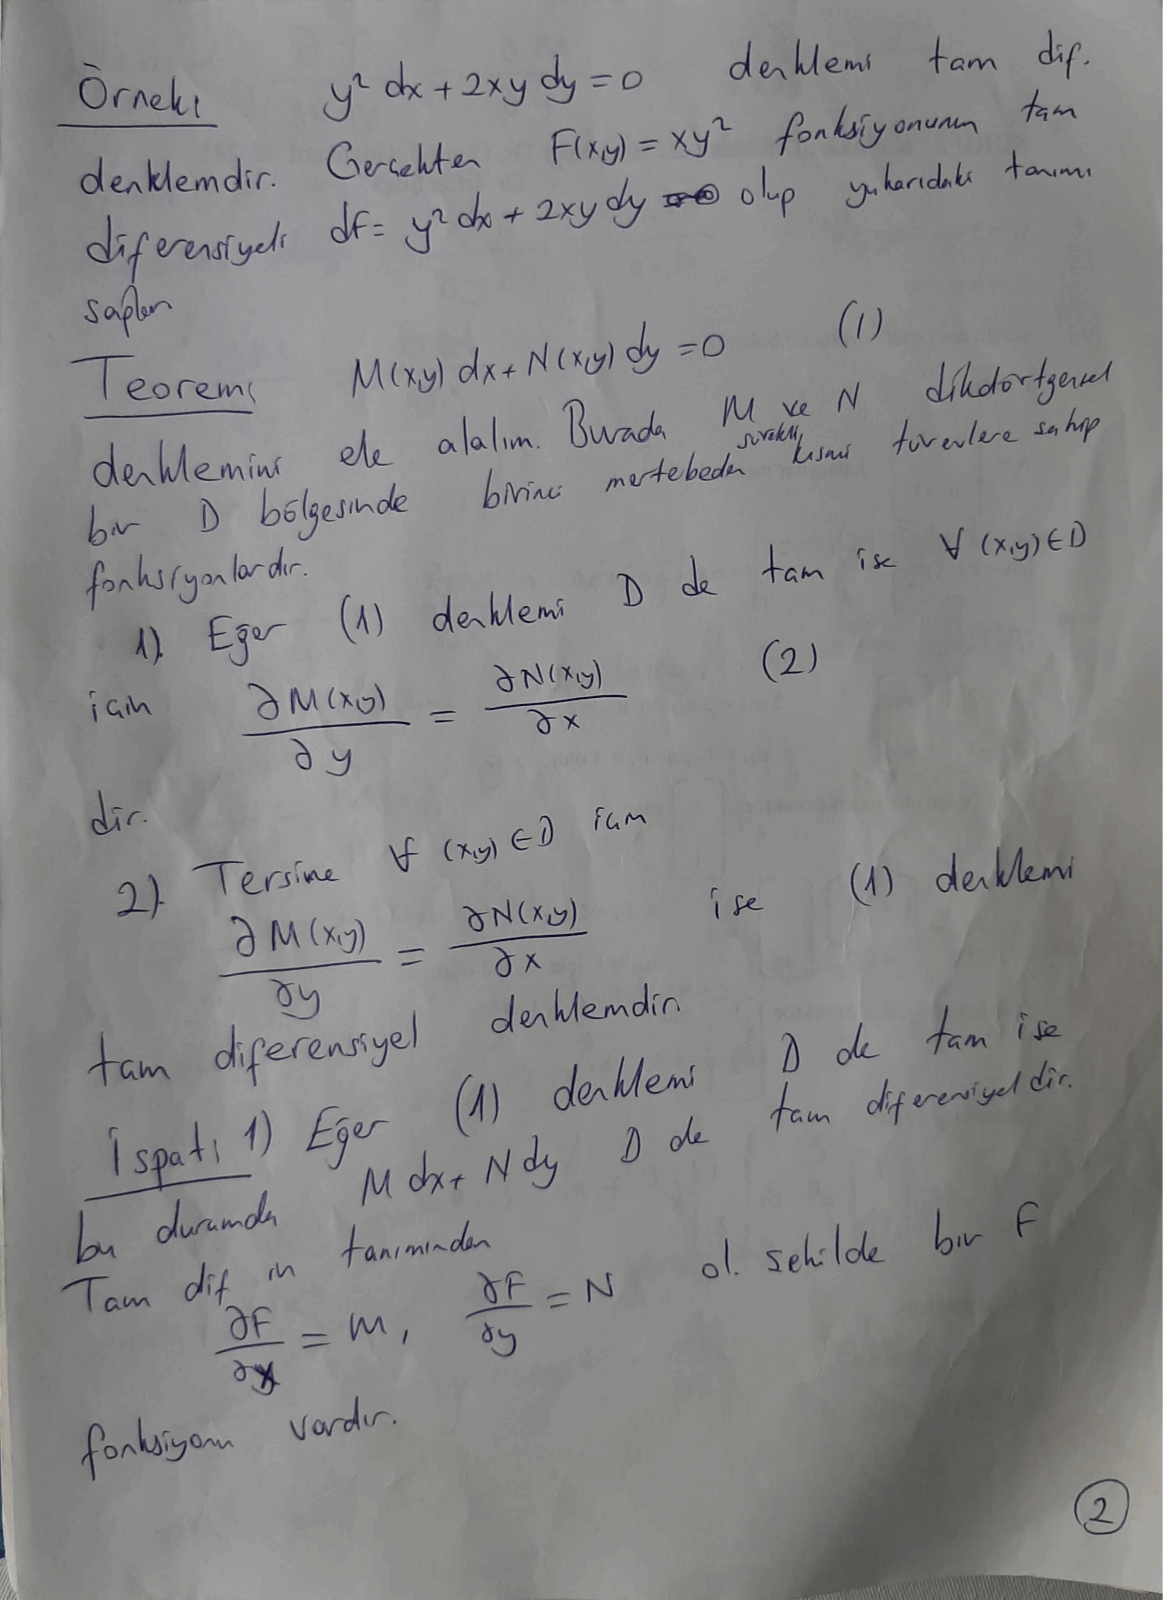 Örnek: y² dx + 2xy dy = 0 denklemi tam dif.
denklemdir. Gerçekten F(x,y) = xy² fonksiyonunun tam
diferensiyeli dF = y² dx + 2xy dy olup yukarıdaki tanımı
sağlar
Teorem: M(x,y) dx + N(x,y) dy = 0 (1)
denklemini ele alalım. Burada M ve N dikdörtgensel
bir D bölgesinde birinci mertebeden sürekli kısmi türevlere sahip
fonksiyonlardır.
1) Eğer (1) denklemi D de tam ise ∀ (x,y) ∈ D
için ∂M(x,y)/∂y = ∂N(x,y)/∂x (2)
dir.
2) Tersine ∀ (x,y) ∈ D için
∂M(x,y)/∂y = ∂N(x,y)/∂x ise (1) denklemi
tam diferensiyel denklemdir.
İspat: 1) Eğer (1) denklemi D de tam ise
bu durumda M dx + N dy D de tam diferensiyeldir.
Tam dif in tanımından
∂F/∂x = M, ∂F/∂y = N ol. şekilde bir F
fonksiyonu vardır.
2